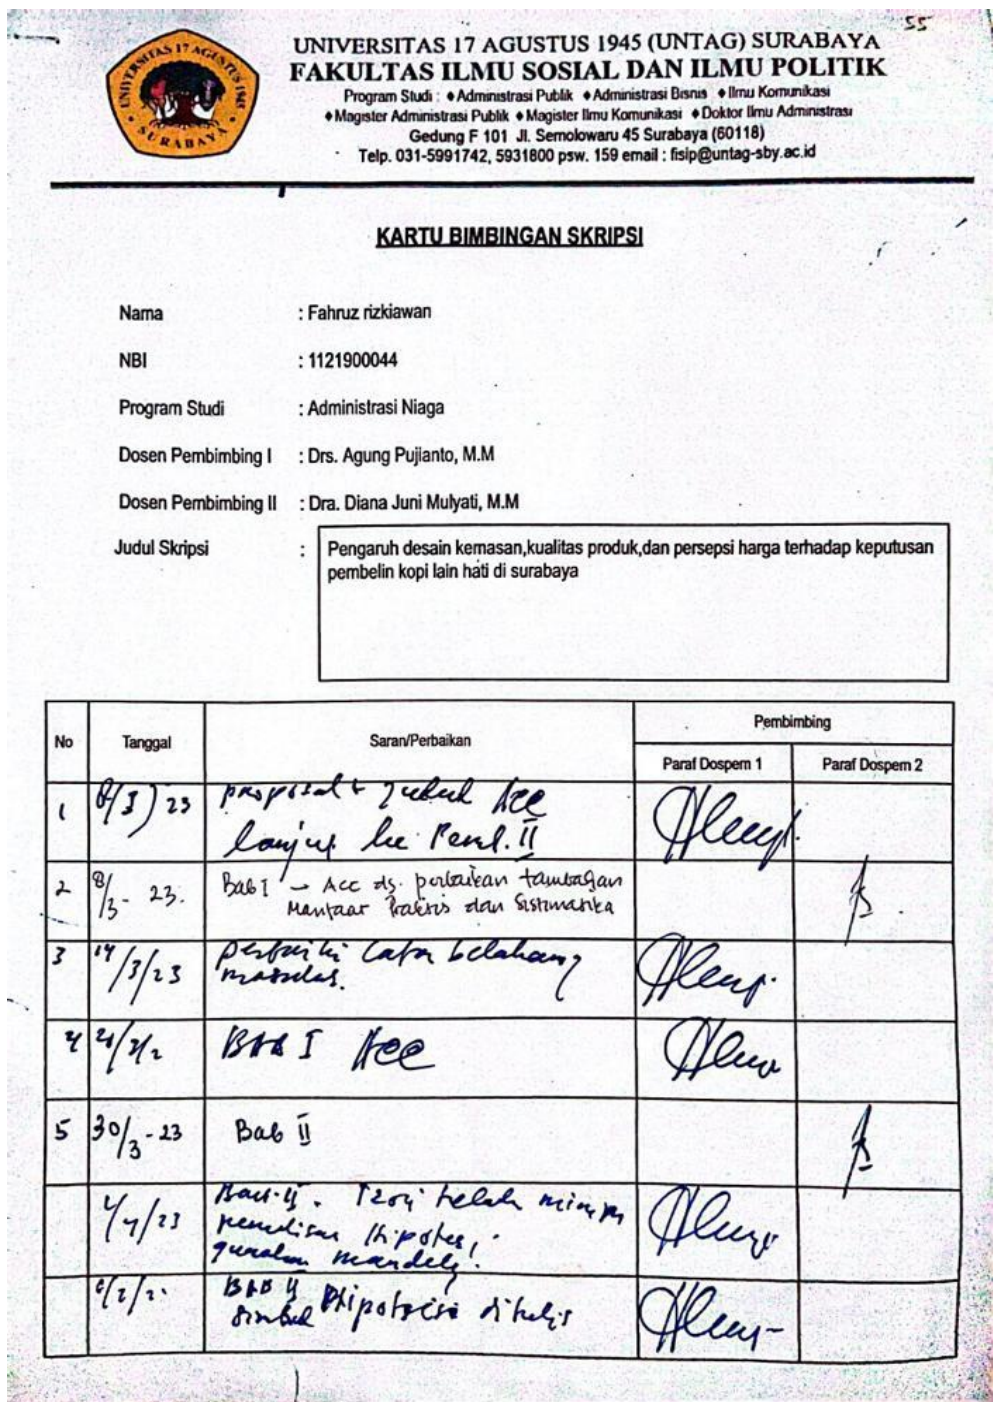 55
UNIVERSITAS 17 AGUSTUS 1945 (UNTAG) SURABAYA
FAKULTAS ILMU SOSIAL DAN ILMU POLITIK
Program Studi : ♦Administrasi Publik ♦Administrasi Bisnis ♦Ilmu Komunikasi
♦Magister Administrasi Publik ♦Magister Ilmu Komunikasi ♦Doktor Ilmu Administrasi
Gedung F 101 Jl. Semolowaru 45 Surabaya (60118)
Telp. 031-5991742, 5931800 psw. 159 email : fisip@untag-sby.ac.id
UNIVERSITAS 17 AGUSTUS 1945
SURABAYA
KARTU BIMBINGAN SKRIPSI
Nama : Fahruz rizkiawan
NBI : 1121900044
Program Studi : Administrasi Niaga
Dosen Pembimbing I : Drs. Agung Pujianto, M.M
Dosen Pembimbing II : Dra. Diana Juni Mulyati, M.M
Judul Skripsi : Pengaruh desain kemasan,kualitas produk,dan persepsi harga terhadap keputusan
pembelin kopi lain hati di surabaya
No Tanggal Saran/Perbaikan Pembimbing
Paraf Dospem 1 Paraf Dospem 2
1 23 proposal + Judul Acc
lanjut ke Pemb. II
2 8/3 - 23. Bab I → Acc dg. perbaikan tambahan
Manfaat Praktis dan Sistimatika
3 14/3/23 perbaiki latar belakang
masalah.
4 BAB I Acc
5 30/3 - 23 Bab II
4/4/23 Bab II. Teori telah
penulisan Hipotesi
gunakan mendely.
BAB II Hipotesis ditulis
simbol